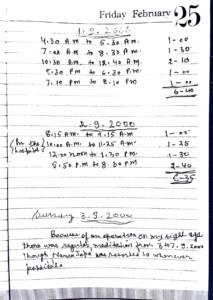 Friday February 25
1.9.2000
4.30 A.M to 5.30 A.M. 1-00
7-00 A.M to 8.30 A.M. 1-30
10.30 A.M. to 12.40 A.M. 2-10
5.30 P.M to 6.30 P.M. 1-00
7.10 P.M to 8.10 P.M 1-00
6-40
2.9.2000
8.15 A.M. to 9.15 A.M. 1-00
(In the hospital) 10.00 A.M. to 11.25 A.M. 1-25
12.00 noon to 1.30 P.M. 1-30
5.50 P.M to 8.30 P.M 2-40
6-35
Sunday 3.9.2000
Because of an operation on my right eye
there was regular meditation from 3 to 7.9.2000
Though Nama Japa was resorted to whenever
possible.